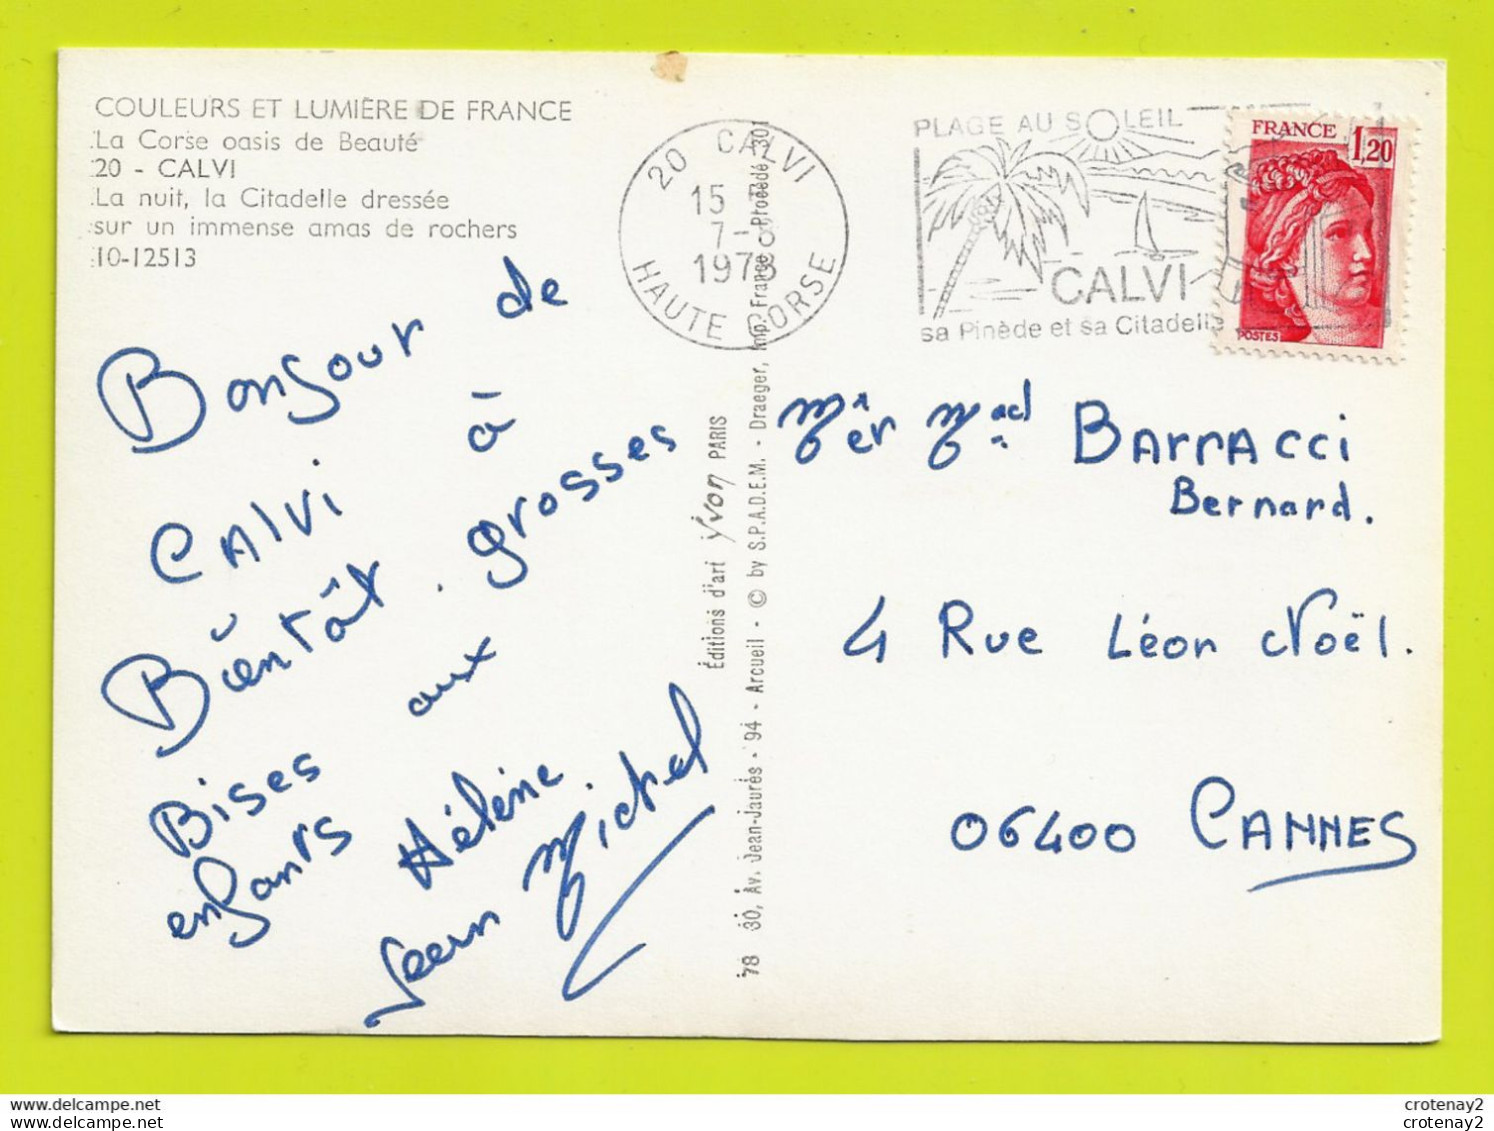 COULEURS ET LUMIÈRE DE FRANCE
La Corse oasis de Beauté
20 - CALVI
La nuit, la Citadelle dressée
sur un immense amas de rochers
10-12513
20 CALVI
15 H
7-8
1978
HAUTE CORSE
PLAGE AU SOLEIL
CALVI
sa Pinède et sa Citadelle
FRANCE
1,20
POSTES
Bonjour de
CAlvi à
Bientôt. grosses
Bises aux
enfants
Hélène
Jean Michel
Éditions d'art Yvon PARIS
78 30, Av. Jean-Jaurès - 94 - Arcueil - © by S.P.A.D.E.M. - Draeger, Imp. France - Procédé 301
Mr er Mad BArrAcci
Bernard.
4 Rue Léon Noël.
06400 CANNES
www.delcampe.net
www.delcampe.net
crotenay2
crotenay2